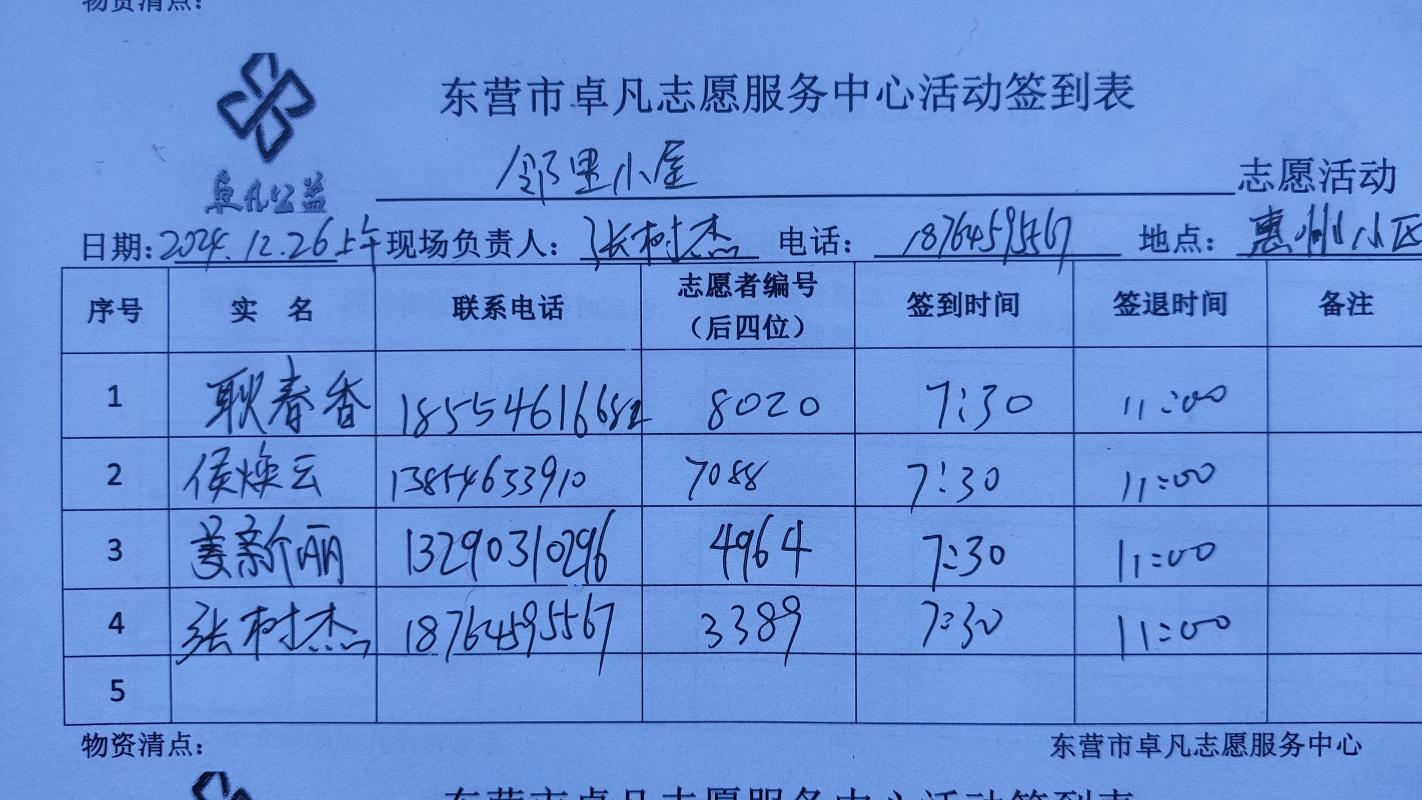 物资清点：
东营市卓凡志愿服务中心活动签到表
卓凡公益
邻里小屋 志愿活动
日期：2024.12.26上午 现场负责人：张树杰 电话：18764595567 地点：惠州小区
序号 实 名 联系电话 志愿者编号（后四位） 签到时间 签退时间 备注
1 耿春香 18554616682 8020 7:30 11:00
2 侯焕云 13854633910 7088 7:30 11:00
3 姜新丽 13290310296 4964 7:30 11:00
4 张树杰 18764595567 3389 7:30 11:00
5
物资清点： 东营市卓凡志愿服务中心
东营市卓凡志愿服务中心活动签到表